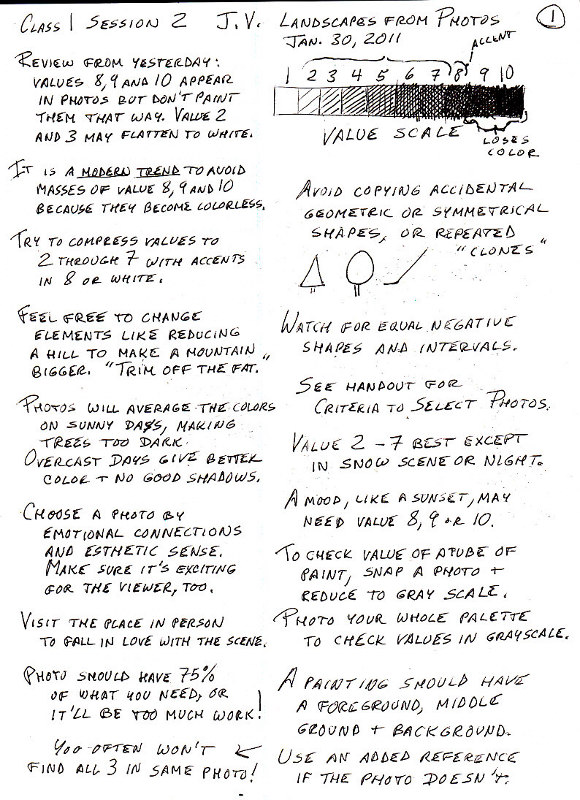 CLASS 1 SESSION 2 J.V. LANDSCAPES FROM PHOTOS
JAN. 30, 2011
1
REVIEW FROM YESTERDAY:
VALUES 8,9 AND 10 APPEAR
IN PHOTOS BUT DON'T PAINT
THEM THAT WAY. VALUE 2
AND 3 MAY FLATTEN TO WHITE.
IT IS A MODERN TREND TO AVOID
MASSES OF VALUE 8,9 AND 10
BECAUSE THEY BECOME COLORLESS.
TRY TO COMPRESS VALUES TO
2 THROUGH 7 WITH ACCENTS
IN 8 OR WHITE.
FEEL FREE TO CHANGE
ELEMENTS LIKE REDUCING
A HILL TO MAKE A MOUNTAIN
BIGGER. "TRIM OFF THE FAT."
PHOTOS WILL AVERAGE THE COLORS
ON SUNNY DAYS, MAKING
TREES TOO DARK.
OVERCAST DAYS GIVE BETTER
COLOR + NO GOOD SHADOWS.
CHOOSE A PHOTO BY
EMOTIONAL CONNECTIONS
AND ESTHETIC SENSE.
MAKE SURE IT'S EXCITING
FOR THE VIEWER, TOO.
VISIT THE PLACE IN PERSON
TO FALL IN LOVE WITH THE SCENE.
PHOTO SHOULD HAVE 75%
OF WHAT YOU NEED, OR
IT'LL BE TOO MUCH WORK!
YOU OFTEN WON'T
FIND ALL 3 IN SAME PHOTO!
ACCENT
1 2 3 4 5 6 7 8 9 10
VALUE SCALE
LOSES
COLOR
AVOID COPYING ACCIDENTAL
GEOMETRIC OR SYMMETRICAL
SHAPES, OR REPEATED
"CLONES"
WATCH FOR EQUAL NEGATIVE
SHAPES AND INTERVALS.
SEE HANDOUT FOR
CRITERIA TO SELECT PHOTOS.
VALUE 2-7 BEST EXCEPT
IN SNOW SCENE OR NIGHT.
A MOOD, LIKE A SUNSET, MAY
NEED VALUE 8,9 OR 10.
TO CHECK VALUE OF A TUBE OF
PAINT, SNAP A PHOTO +
REDUCE TO GRAY SCALE.
PHOTO YOUR WHOLE PALETTE
TO CHECK VALUES IN GRAYSCALE.
A PAINTING SHOULD HAVE
A FOREGROUND, MIDDLE
GROUND + BACKGROUND.
USE AN ADDED REFERENCE
IF THE PHOTO DOESN'T.